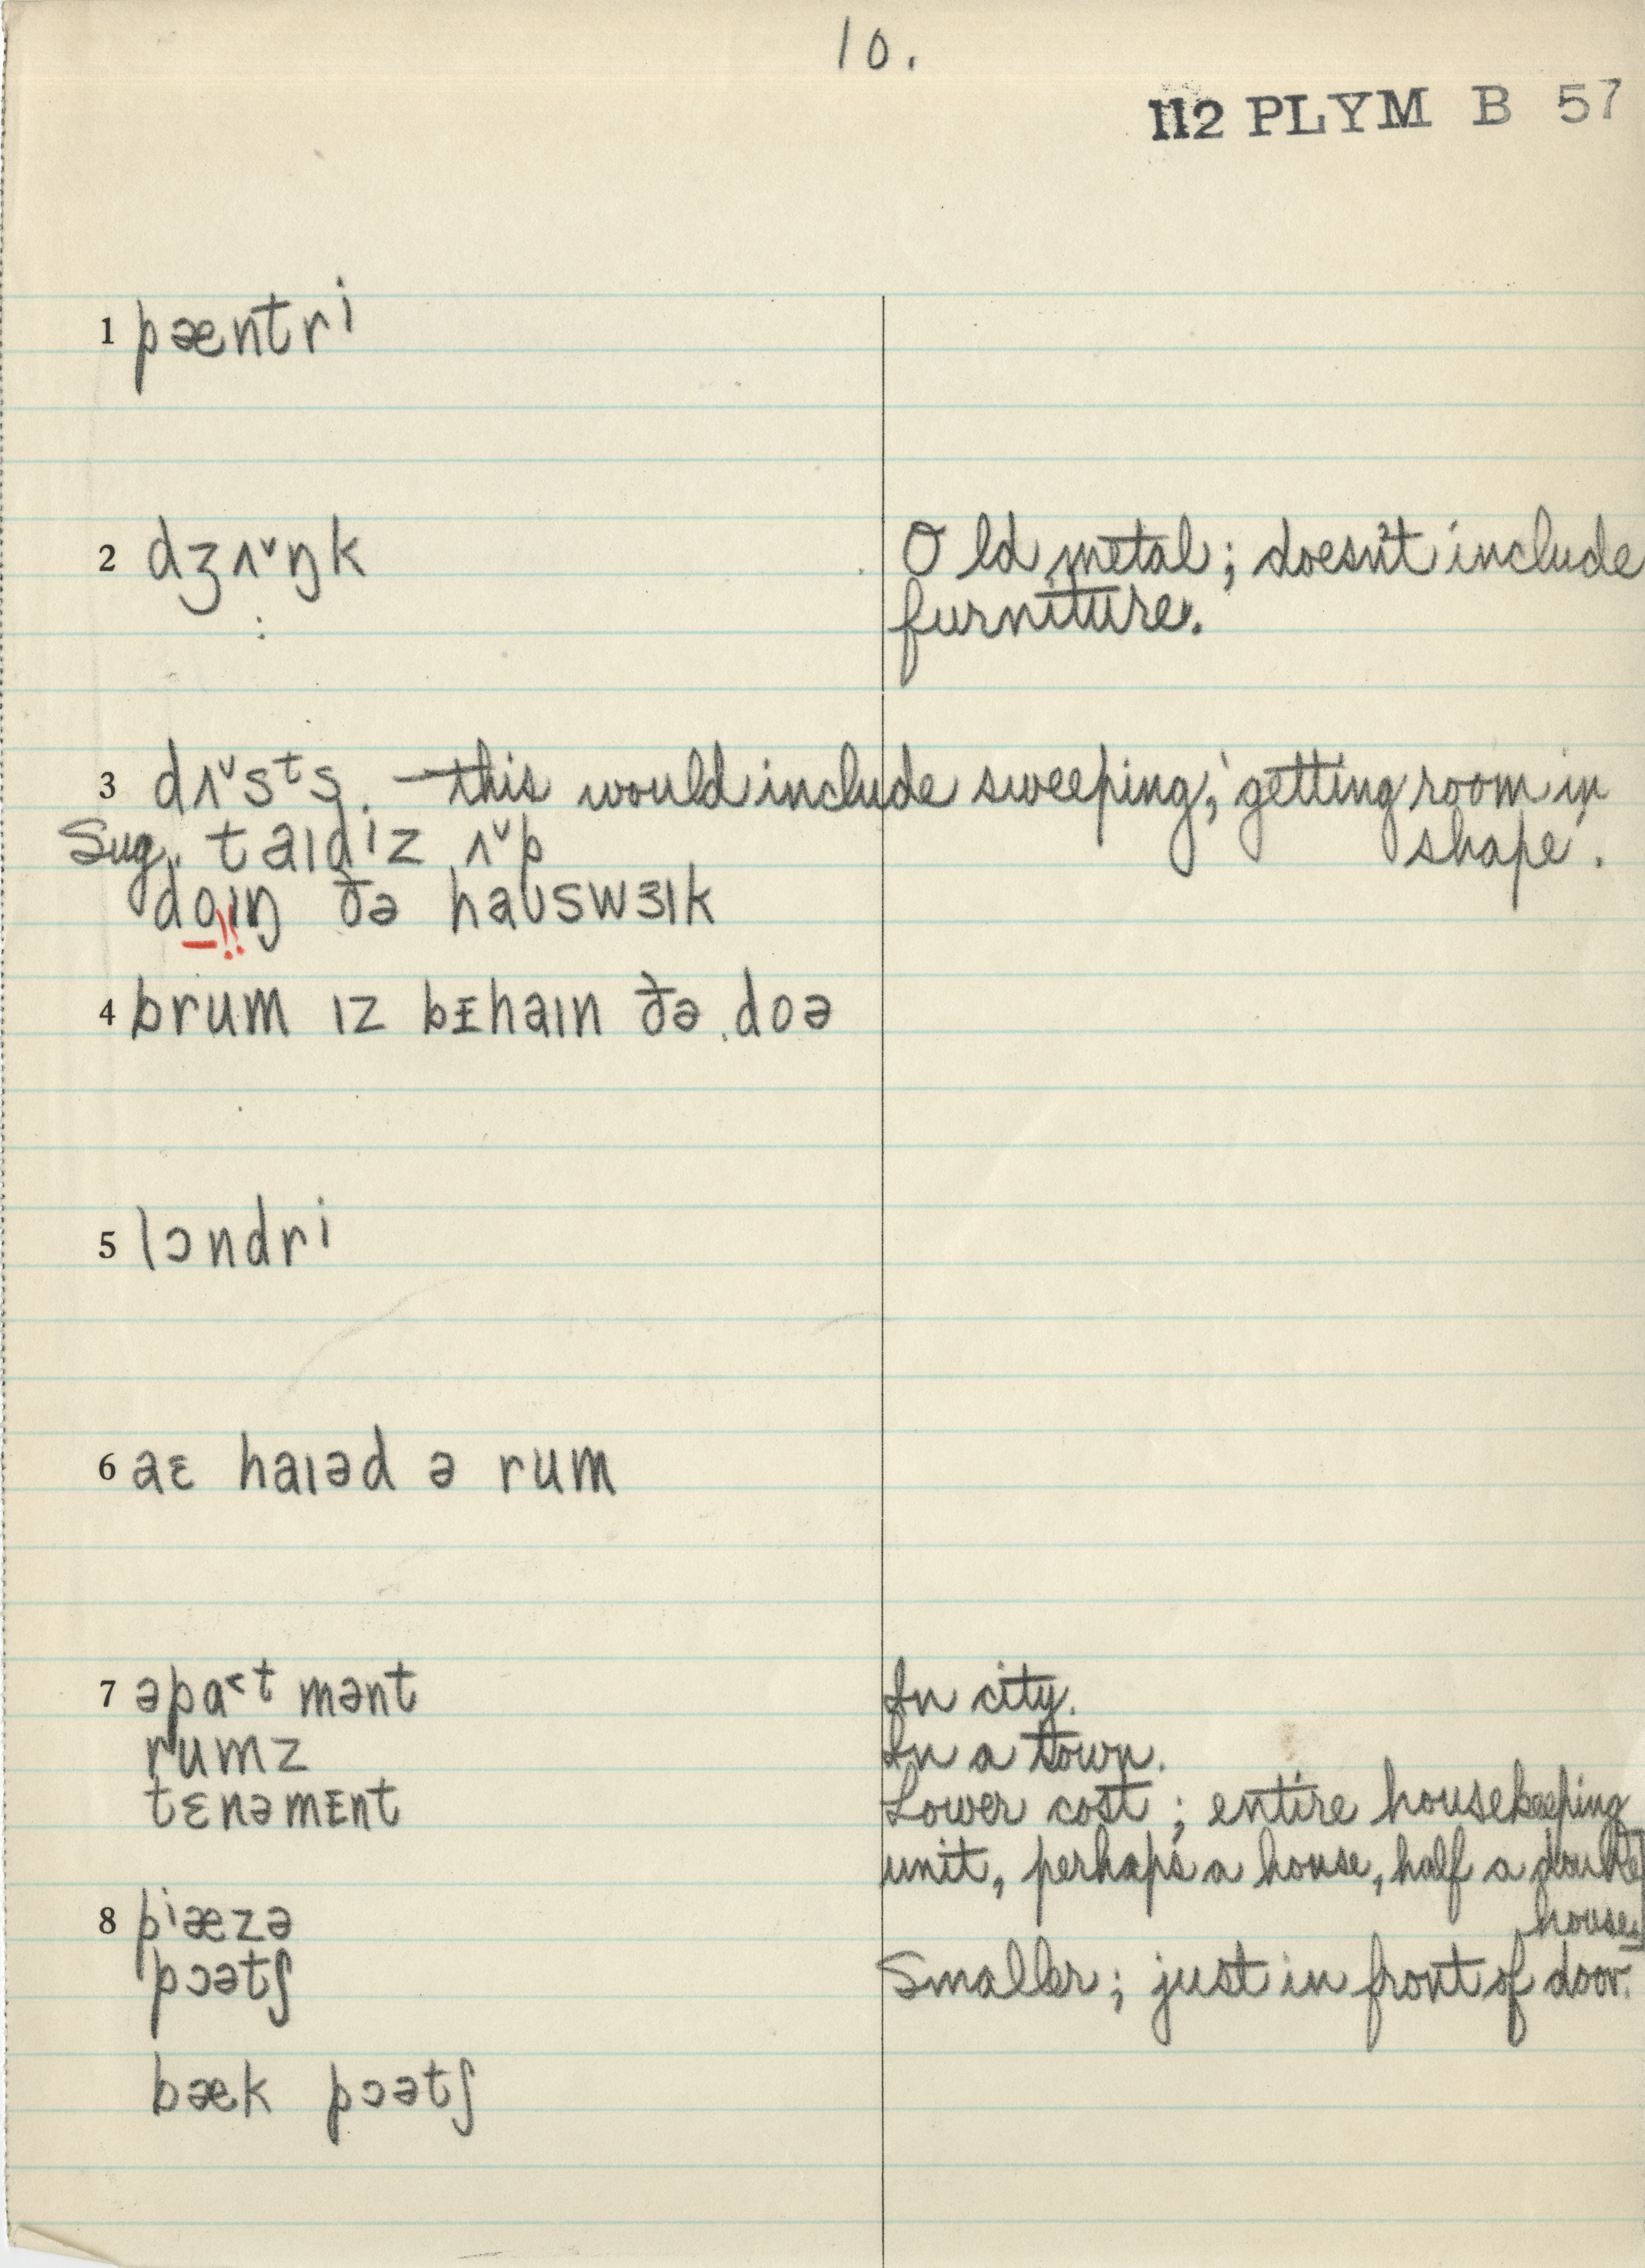 10.
112 PLYM B 57
1 pæntri
2 dʒʌˇŋk Old metal; doesn't include
furniture.
3 dʌˇsᵗs. — this would include sweeping, 'getting room in
shape'.
Sug. taɪdiz ʌˇp
doɪŋ ðə haʊswɜɪk
4 brum ɪz bᵻhaɪn ðə doə
5 lɔndri
6 aɛ haɪəd ə rum
7 əpa˂ᵗmənt In city.
rumz In a town.
tɛnəmᵻnt Lower cost; entire housekeeping
unit, perhaps a house, half a double
house]
8 pⁱæzə
pɔətʃ Smaller; just in front of door.
bæk pɔətʃ